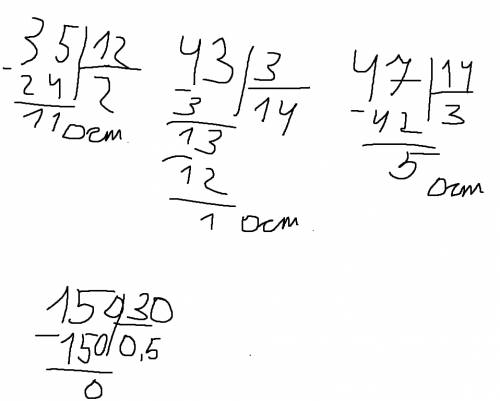 35 12
- 24 2
11 ост
43 3
- 3 14
13
- 12
1 ост
47 14
- 42 3
5 ост
150 30
- 150 0,5
0